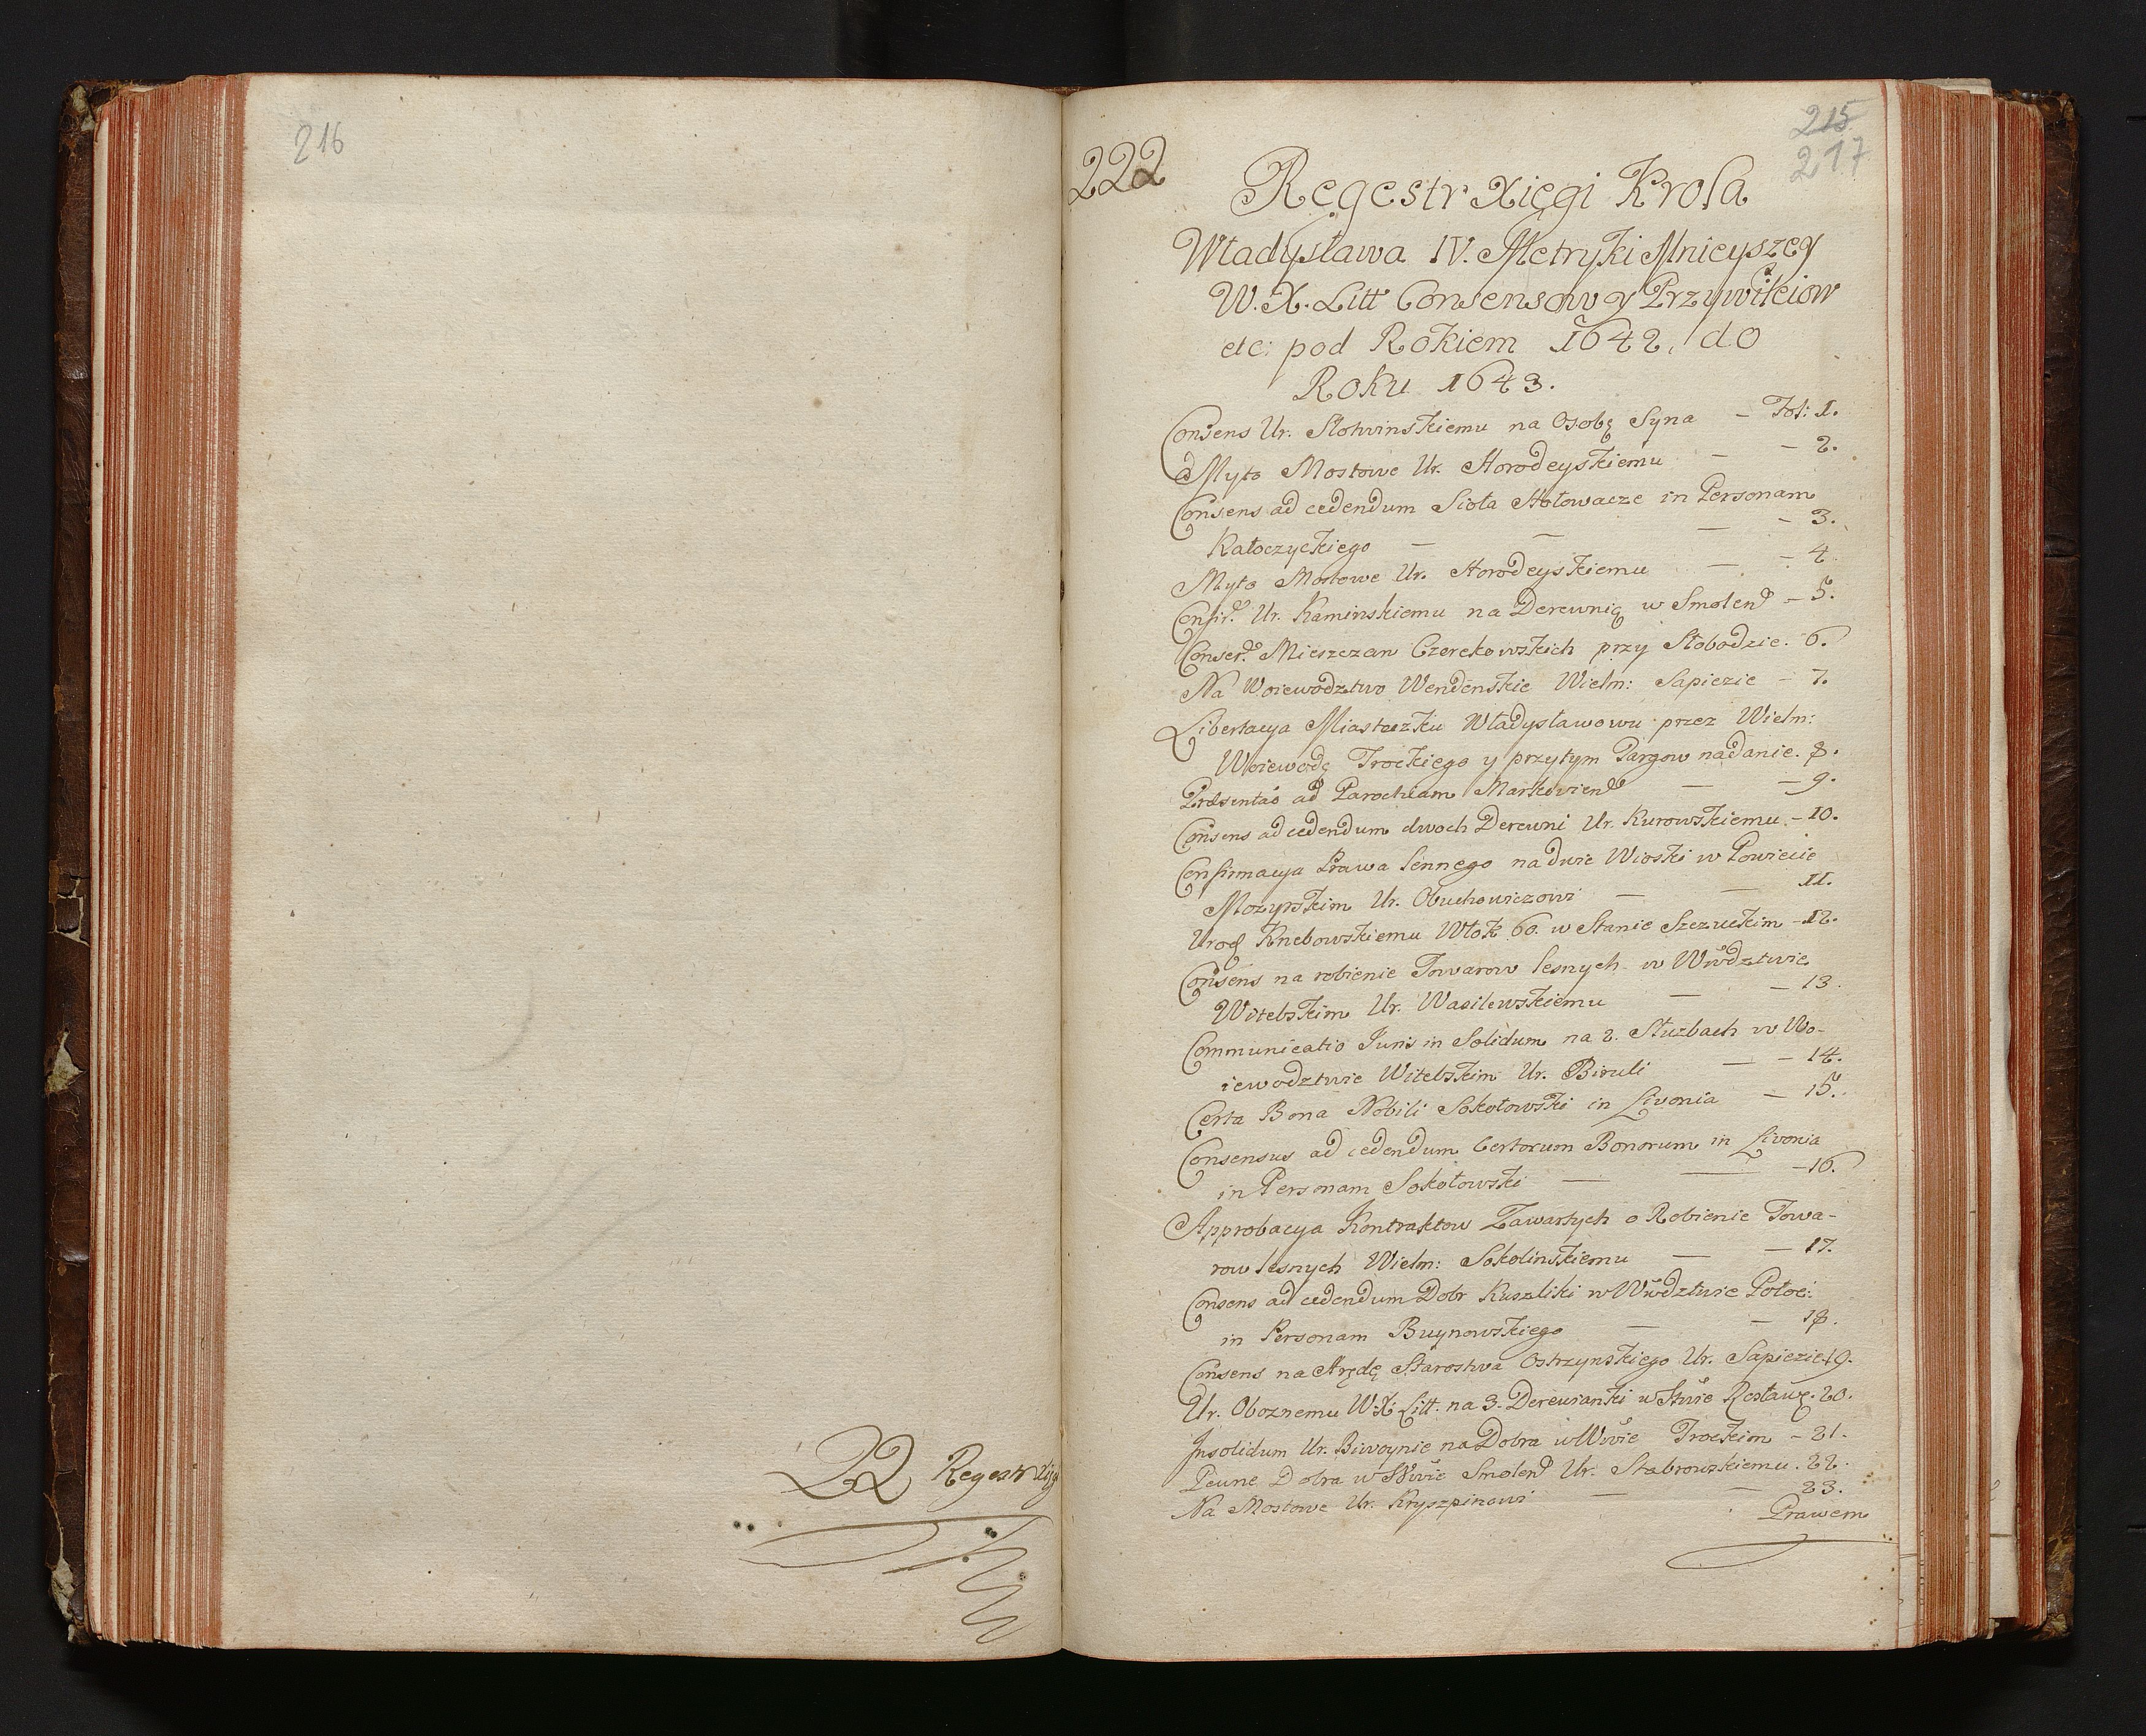 216
22 Regestr Xięg
215
217
222
Regestr Xięgi Krola
Władysława IV. Metryki Mnieyszey
W. X. Litt Consensow y Przywileiow
etc: pod Rokiem 1642, do
Roku 1643.
Consens Ur. Słotwinskiemu na Osobę Syna – Fol: 1.
Myto Mostowe Ur. Horodeyskiemu – – 2.
Consens ad cedendum Sioła Hołowacze in Personam
Kałoczyckiego – – – – 3.
Myto Mostowe Ur. Horodeyskiemu – – 4
Confir. Ur. Kaminskiemu na Derewnią w Smolen – 5.
Conser. Mieszczan Czerekowskich przy Słobodzie. 6.
Na Woiewodztwo Wendenskie Wielm: Sapiezie – 7.
Libertacya Miasteczku Władysławowu przez Wielm:
Woiewodę Trockiego y przytym Targow nadanie. 8.
Præsentao ad Parochiam Markovien – – 9.
Consens ad cedendum dwoch Derewni Ur. Kurowskiemu. – 10.
Confirmacya Prawa Lennego na dwie Wioski w Powiecie
Mozyrskim Ur. Obuchowiczowi – – 11.
Urod Knebowskiemu Włok 60. w Stanie Szczuckim – 12.
Consens na robienie Towarow lesnych w Wwdztwie
Witebskim Ur. Wasilewskiemu – – 13.
Communicatio Juris in Solidum na 2. Służbach w Wo-
iewodztwie Witebskim Ur. Biruli – – 14.
Certa Bona Nobili Sokołowski in Livonia – 15.
Consensus ad cedendum Certorum Bonorum in Livonia
in Personam Sokołowski – – – 16.
Approbacya Kontraktow Zawartych o Robienie Towa-
row lesnych Wielm: Sokolinskiemu – – 17.
Consens ad cedendum Dobr Kuszliki w Wwdztwie Połoc:
in Personam Buynowskiego – – 18.
Consens na Arędę Starostwa Ostrzynskiego Ur. Sapiezie 19.
Ur. Oboznemu W. X. Litt. na 3. Derewianki w Stwie Rosław. 20.
Insolidum Ur. Biwoynie na Dobra w Wwie Trockim – 21.
Pewne Dobra w Wwie Smolen Ur. Stabrowskiemu. 22.
Na Mostowe Ur. Kryszpinowi – – 23.
Prawem